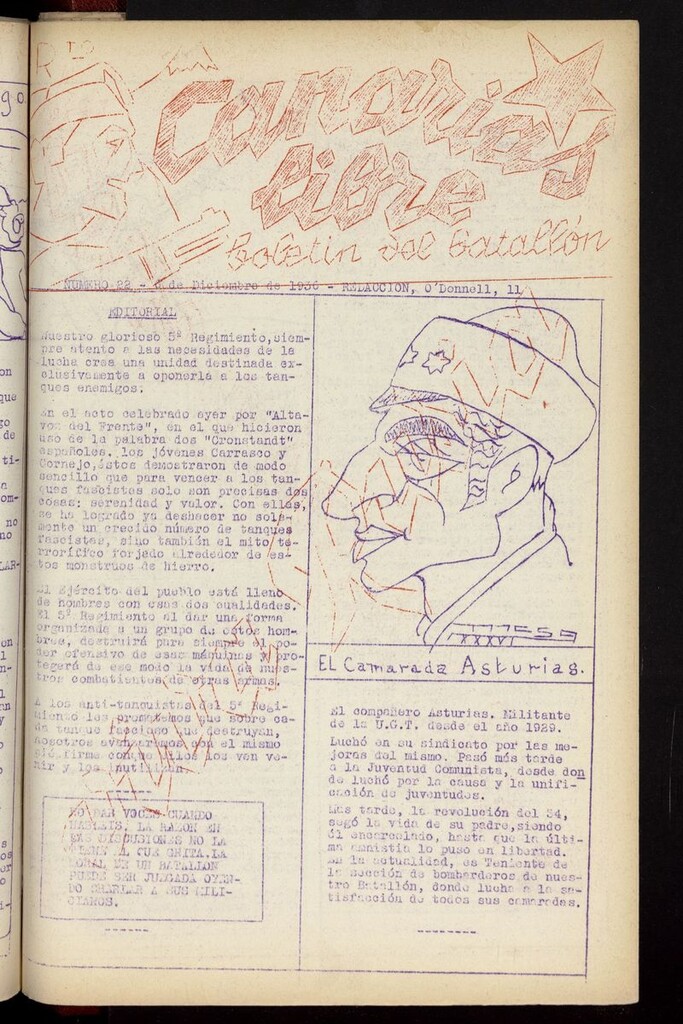 Canarias
Libre
boletin del batallón
NUMERO 22 - de Diciembre de 1936 - REDACCION, O'Donnell, 11
EDITORIAL
Nuestro glorioso 5º Regimiento,siem-
pre atento a las necesidades de la
lucha crea una unidad destinada ex-
clusivamente a oponerla a los tan-
ques enemigos.
En el acto celebrado ayer por "Alta-
voz del Frente", en el que hicieron
uso de la palabra dos "Cronstandt"
españoles. los jóvenes Carrasco y
Cornejo,éstos demostraron de modo
sencillo que para vencer a los tan-
ques fascistas solo son precisas dos
cosas: serenidad y valor. Con ellas,
se ha logrado ya deshacer no sola-
mente un crecido número de tanques
fascistas, sino también el mito te-
rrorífico forjado alrededor de es-
tos monstruos de hierro.
El Ejército del pueblo está lleno
de hombres con esas dos cualidades.
El 5º Regimiento al dar una forma
organizada a un grupo de estos hom-
bres, destruirá para siempre el po-
der ofensivo de esas máquinas y pro-
tegerá de ese modo la vida de nues-
tros combatientes de otras armas.
A los anti-tanquistas del 5º Regi-
miento les prometemos que sobre ca-
da tanque faccioso que destruyan,
nosotros avanzaremos con el mismo
firme conque ellos los ven ve-
nir y los inutilizan.
NO DAR VOCES CUANDO
HABLEIS. LA RAZON EN
LAS DISCUSIONES NO LA
TIENE AL QUE GRITA.LA
MORAL DE UN BATALLON
PUEDE SER JUZGADA OYEN-
DO CHARLAR A SUS MILI-
CIANOS.
XXXVI
EL Camarada Asturias.
El compañero Asturias. Militante
de la U.G.T. desde el año 1929.
Luchó en su sindicato por las me-
joras del mismo. Pasó más tarde
a la Juventud Comunista, desde don
de luchó por la causa y la unifi-
cación de juventudes.
Mas tarde, la revolución del 34,
segó la vida de su padre,siendo
él encarcelado, hasta que la últi-
ma amnistia lo puso en libertad.
En la actualidad, es Teniente de
la sección de bombarderos de nues-
tro Batallón, donde lucha a la sa-
tisfacción de todos sus camaradas.